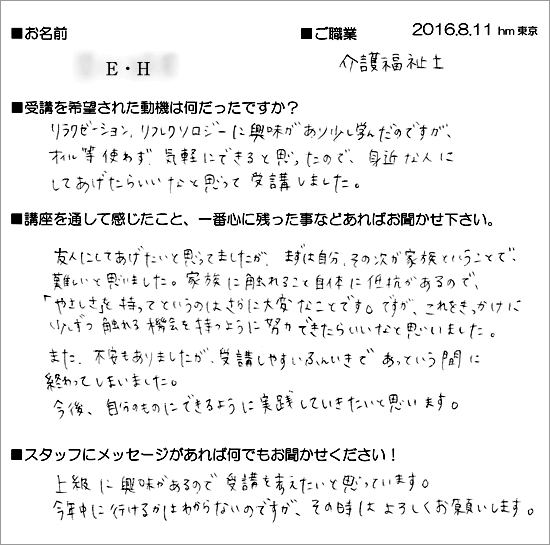 ■お名前
■ご職業
2016.8.11 hm東京
E・H
介護福祉士
■受講を希望された動機は何だったですか？
リラクゼーション、リフレクソロジーに興味があり少し学んだのですが、
オイル等使わず、気軽にできると思ったので、身近な人に
してあげたらいいなと思って受講しました。
■講座を通して感じたこと、一番心に残った事などあればお聞かせ下さい。
友人にしてあげたいと思ってましたが、まずは自分、その次が家族ということで、
難しいと思いました。家族に触れること自体に抵抗があるので、
「やさしさ」を持ってというのはさらに大変なことです。ですが、これをきっかけに
少しずつ触れる機会を持つように努力できたらいいなと思いました。
また、不安もありましたが、受講しやすいふんいきであっという間に
終わってしまいました。
今後、自分のものにできるように実践していきたいと思います。
■スタッフにメッセージがあれば何でもお聞かせください！
上級に興味があるので受講を考えたいと思っています。
今年中に行けるかはわからないのですが、その時はよろしくお願いします。